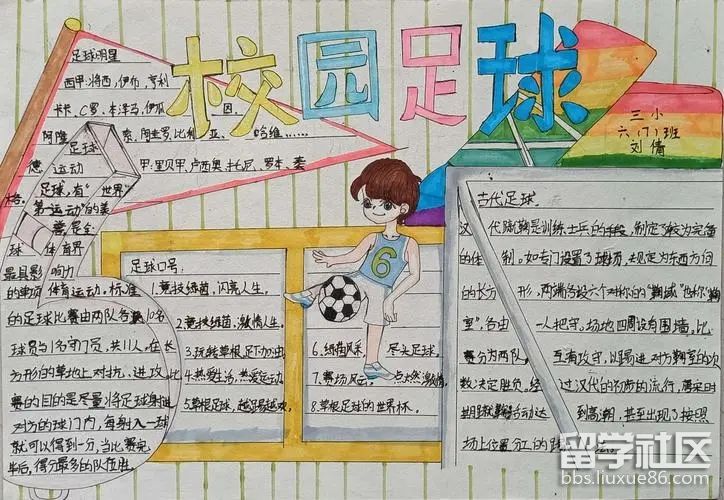 校园足球
三小
六(1)班
刘倩
足球明星
西甲:梅西,伊布,亨利
卡卡、C罗、本泽马、伊瓜因、
阿隆索、
哈维……
德甲:里贝里、卢西奥、托尼、罗本、
足球运动
足球,有"世界
第一运动"的美
誉,是全
球体育界
最具影响力
的单项体育运动,标准
的足球比赛由两队各10名
球员与1名守门员,共11人,在长
方形的草地上对抗、进攻,比
赛的目的是尽量将足球射进
对方的球门内,每射入一球
就可以得到一分,当比赛完
毕后,得分最多的队伍胜。
足球口号:
1.竞技绿茵,闪亮人生。
2.竞技绿茵,激情人生。
3.玩转草根,足下功夫。
4.热爱生活,热爱运动。
5.草根足球,越踢越欢。
6.绿茵风采 尽头足球。
7.赛场风云,点燃激情。
8.草根足球的世界杯。
古代足球。
汉代蹴鞠是训练士兵的手段,制定了较为完备
的体制。如专门设置了球场,规定为东西方向
的长方形,两端各设六个对称的"鞠域"也称"鞠
室",各由一人把守。场地四周设有围墙,比
赛分为两队,互有攻守,以踢进对方鞠室的次
数决定胜负,经过汉代的初步的流行,唐宋时
期蹴鞠活动达到高潮,甚至出现了按照
场上位置分工的
留学社区
bbs.liuxue86.com